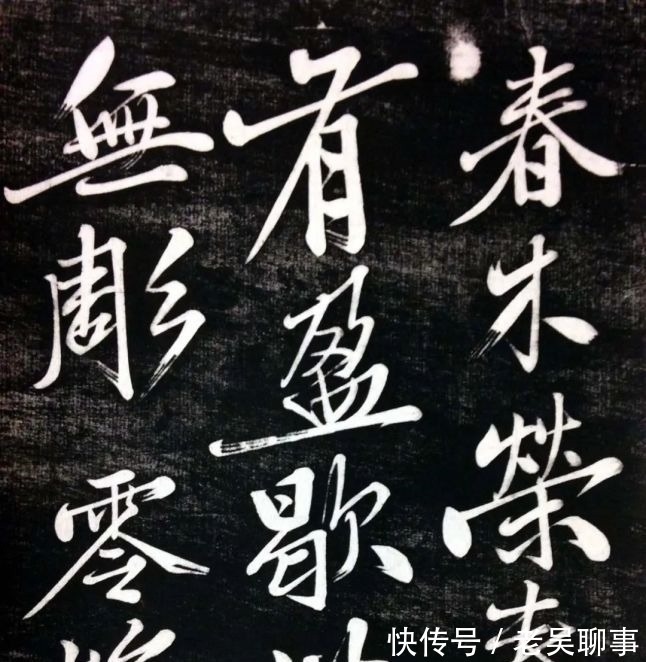 春木榮
有盈歇
無彫零
快传号/老吴聊事